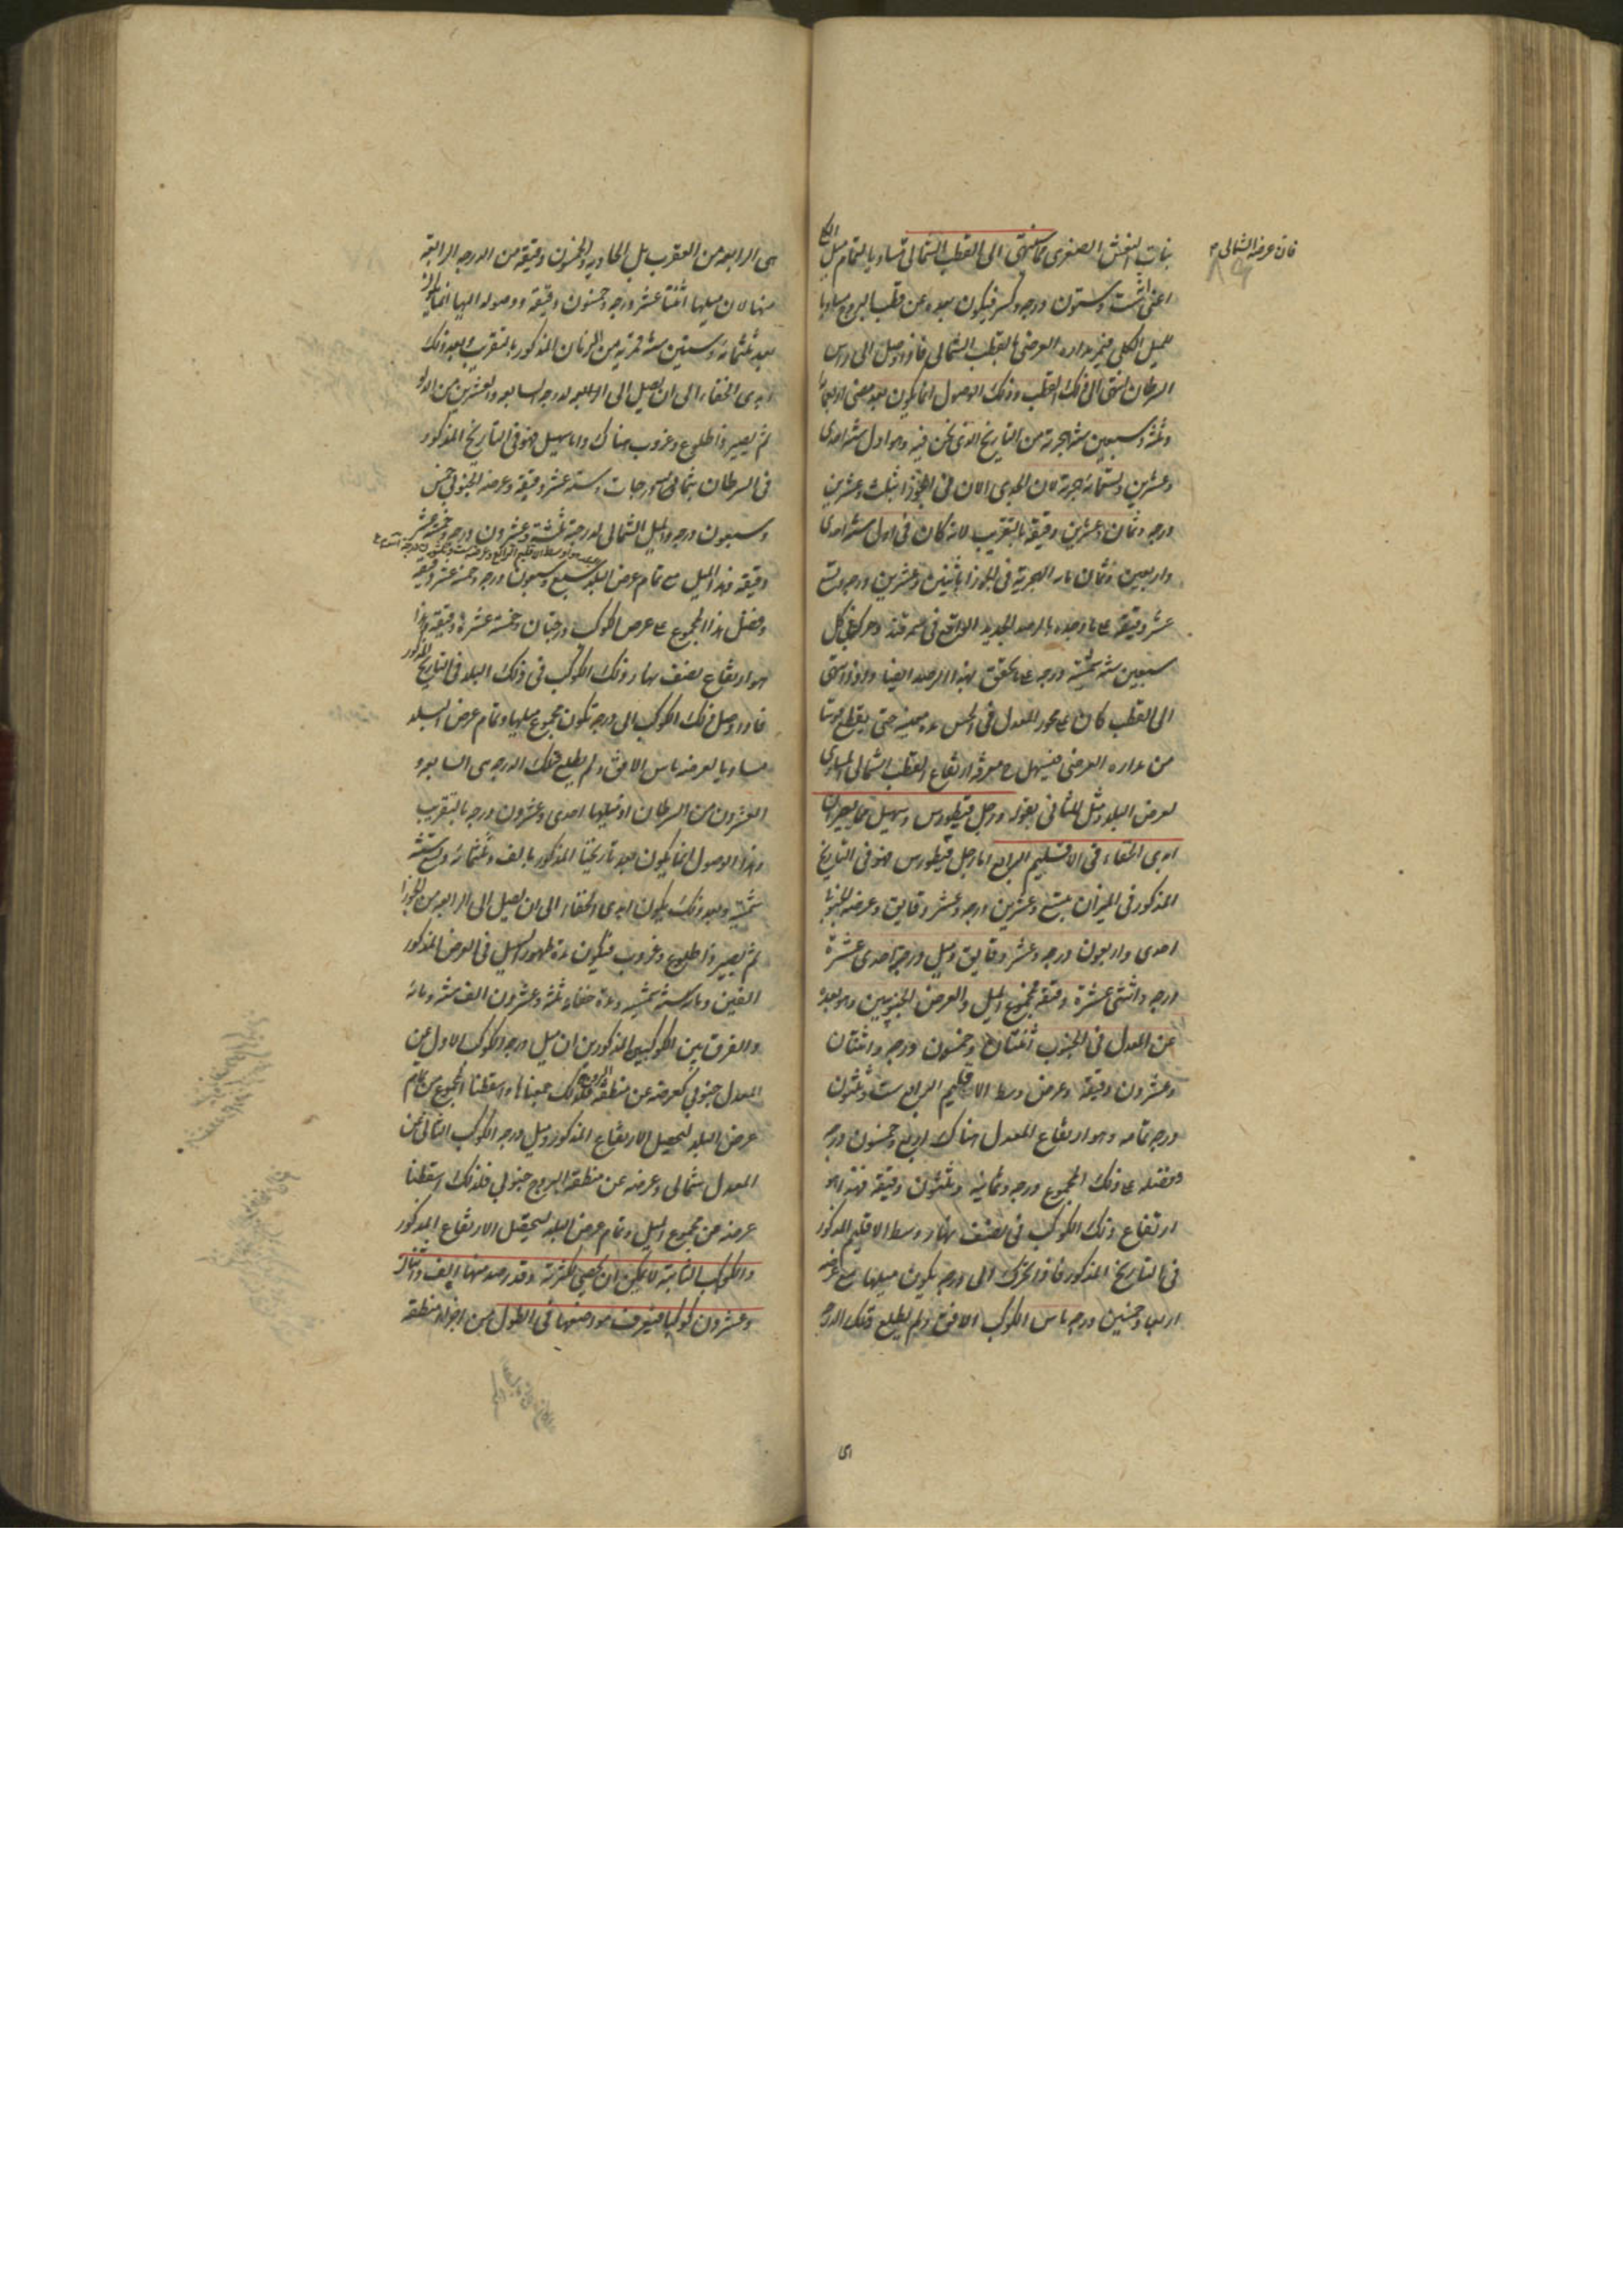 بنات النعش الصغرى مما ينتهى الى القطب الشمالى مساويا لتمام ميل الكلى
فان عرضه الشمالى
اعنى ستة وستون درجة وكسر فيكون بعده عن قطب البروج مساويا
للميل الكلى فيمر مداره العرضى بالقطب الشمالى فاذا وصل الى راس
السرطان انتهى الى ذلك القطب وذلك الوصول انما يكون بعد مضى
وثلثة وسبعين سنة هجرية من التاريخ الذى نحن فيه وهو اول سنة احدى
وعشرين وتسعمائة هجرية لان الجدى الان فى الجوزا بثلث وعشرين
درجة وثمان وعشرين دقيقة بالتقريب لانه كان فى اول سنة احدى
واربعين وثمان مائة الهجرية فى الجوزا باثنين وعشرين درجة وتسع
عشر دقيقة على ما وجده بالرصد الجديد الواقع فى سمرقند وحركته فى كل
سبعين سنة شمسية درجة على ما تحقق بهذا الرصد ايضا واذا انتهى
الى القطب كان على محور المعدل فى الحس مدة حتى يقطع قوسا
من مداره العرضى فيسهل ح معرفة ارتفاع القطب الشمالى المساوى
لعرض البلد ومثل للثانى بقوله ورجل قيطورس وسهيل مما يصيران
ابدى الخفاء فى الاقليم الرابع اما رجل قيطورس فهو فى التاريخ
المذكور فى الميزان بتسع وعشرين درجة وعشر دقايق وعرضه الجنوبى
احدى واربعون درجة وعشر دقايق وميل درجته احدى عشرة
درجة واثنتى عشرة دقيقة فمجموع الميل والعرض الجنوبيين وهو بعده
عن المعدل فى الجنوب اثنتان وخمسون درجة واثنتان
وعشرون دقيقة وعرض وسط الاقليم الرابع ست وثلثون
درجة تمامه وهو ارتفاع المعدل هناك اربع وخمسون درجة
وفضله على ذلك المجموع درجة وثمانية وثلثون دقيقة فهذا هو
ارتفاع ذلك الكوكب فى نصف نهار وسط الاقليم المذكور
فى التاريخ المذكور فاذا تحرك الى درجة يكون ميلها مع عرضه
اربعا وخمسين درجة ماس الكوكب الافق ولم يطلع وتلك الدرجة
هى الرابعة من العقرب بل الحادية والخمسون دقيقة من الدرجة الرابعة
منها لان ميلها اثنتا عشر درجة وخمسون دقيقة ووصوله اليها انما يكون
بعد ثلثمائة وستين سنة قمرية من الزمان المذكور بالتقريب وبعد ذلك
ابدى الخفاء الى ان يصل الى الدرجة السابعة والعشرين من الدلو
ثم يصير ذا طلوع وغروب هناك واما سهيل فهو فى التاريخ المذكور
فى السرطان بثمانى درجات وستة عشر دقيقة وعرضه الجنوبى خمس
وسبعون درجة والميل الشمالى لدرجته ثلثة وعشرون درجة وخمسة عشر
دقيقة فهذا الميل مع تمام عرض البلد سبع وسبعون درجة وخمسة عشر دقيقة
وفضل هذا المجموع على عرض الكوكب درجتان وخمسة عشرة دقيقة وهذا
هو ارتفاع نصف نهار ذلك الكوكب فى ذلك البلد فى التاريخ المذكور
فاذا وصل ذلك الكوكب الى درجة تكون مجموع ميلها وتمام عرض البلد
مساويا لعرضه ماس الافق ولم يطلع وتلك الدرجة هى السابعة و
العشرون من السرطان اذ ميلها احدى وعشرون درجة بالتقريب
وهذا الوصول انما يكون بعد تاريخنا المذكور بالف وثلثمائة وتسع سنة
شمسية وبعد ذلك يكون ابدى الخفاء الى ان يصل الى الرابعة من الجوزا
ثم يصير ذا طلوع وغروب فيكون مدة ظهور سهيل فى العرض المذكور
الفين ومائة سنة شمسية ومدة خفاءه ثلثة وعشرون الف سنة ومائة
والفرق بين الكوكبين المذكورين ان ميل درجة الكوكب الاول عن
المعدل جنوبى كعرضه عن منطقة البروج فلذلك جمعناها واسقطنا المجموع من تمام
عرض البلد لتحصيل الارتفاع المذكور وميل درجة الكوكب الثانى عن
المعدل شمالى وعرضه عن منطقة البروج جنوبى فلذلك اسقطنا
عرضه من مجموع الميل وتمام عرض البلد ليحصل الارتفاع المذكور
والكواكب الثابتة لا يمكن ان تحصى لكثرته وقد رصد منها الف واثنان
وعشرون كوكبا فيعرف مواضعها فى الطول من اجزاء منطقة